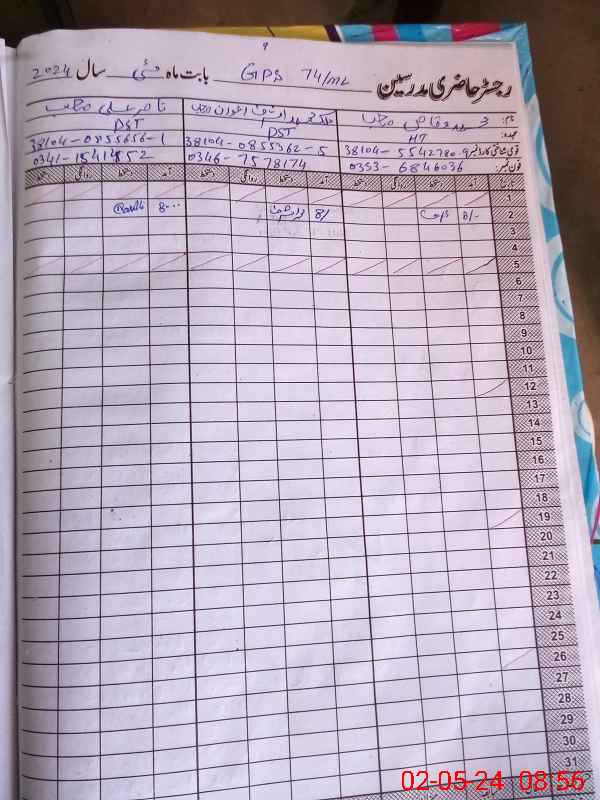 9
رجسٹر حاضری مدرسین GPS 74/ML بابت ماہ مئی سال 2024
نام: محمد وقاص صاحب ملک محمد اشرف اعوان صاحب ناصر علی صاحب
عہدہ: HT PST PST
قومی شناختی کارڈ نمبر 38104-5542780-9 38104-0855362-5 38104-0855656-1
فون نمبر: 0353-6846036 0346-7578174 0341-1541452
تاریخ آمد دستخط روانگی دستخط آمد دستخط روانگی دستخط آمد دستخط روانگی دستخط
1
2 8/- 8/ 8-00
3
4
5
6
7
8
9
10
11
12
13
14
15
16
17
18
19
20
21
22
23
24
25
26
27
28
29
30
31
02-05-24 08:56